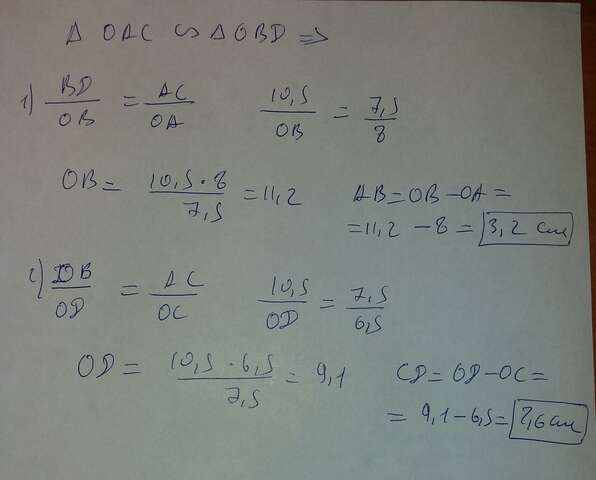 Δ OAC ∽ Δ OBD ⇒
1) BD/OB = AC/OA 10,5/OB = 7,5/8
OB = 10,5 · 8/7,5 = 11,2 AB = OB – OA =
= 11,2 – 8 = 3,2 см
2) DB/OD = AC/OC 10,5/OD = 7,5/6,5
OD = 10,5 · 6,5/7,5 = 9,1 CD = OD – OC =
= 9,1 – 6,5 = 2,6 см